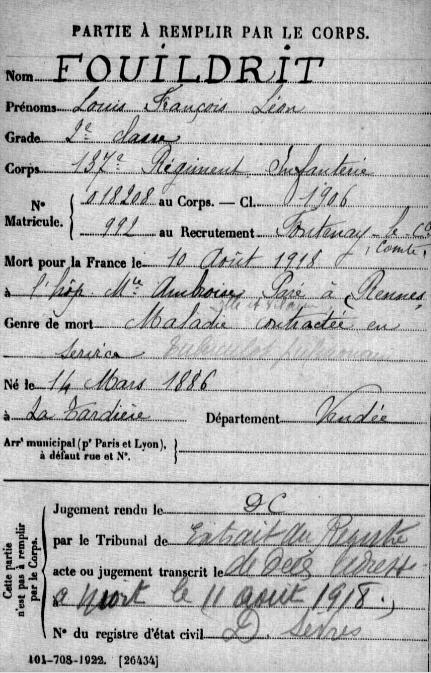 PARTIE À REMPLIR PAR LE CORPS.
Nom FOUILDRIT
Prénoms Louis François Léon
Grade 2e classe
Corps 137e Régiment Infanterie
N° Matricule. { 018208 au Corps. — Cl. 1906
992 au Recrutement Fontenay-le-Cte
Comte
Mort pour la France le 10 Août 1918
à l'hôp Mre Ambroise Paré à Rennes
Ille et
Genre de mort Maladie contractée en
service
Né le 14 Mars 1886
à La Tardière Département Vendée
Arrt municipal (pr Paris et Lyon),
à défaut rue et N°. }
Cette partie n'est pas à remplir par le Corps.
Jugement rendu le DC
par le Tribunal de Extrait du Registre
acte ou jugement transcrit le de Décès
à Niort le 11 août 1918.
N° du registre d'état civil D. Sèvres
101-708-1922. [26434]